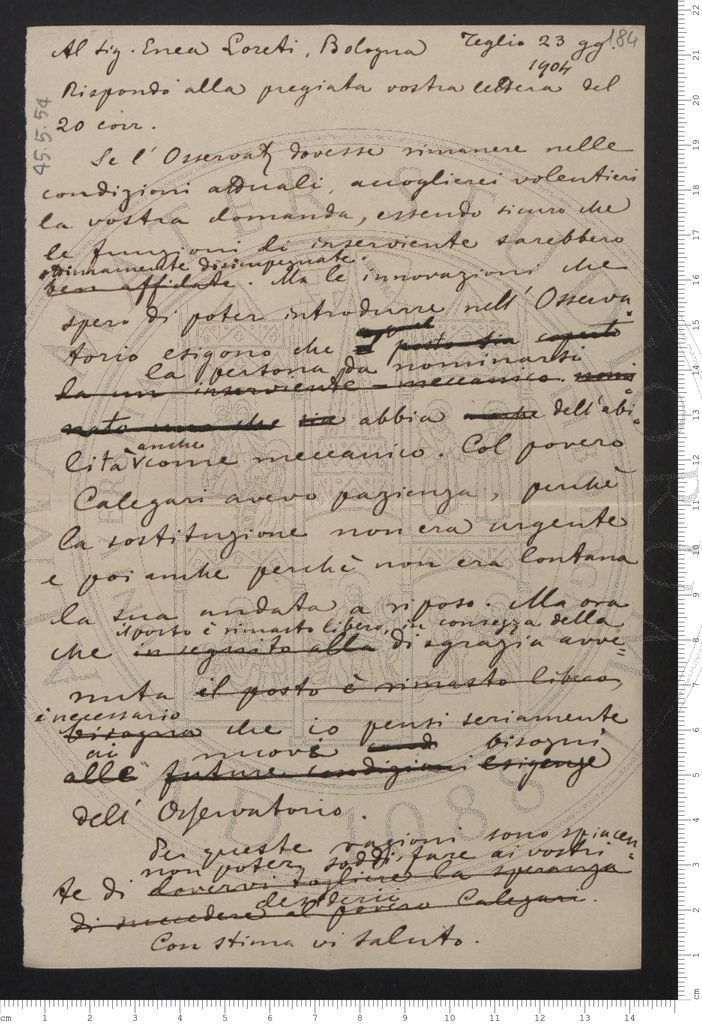 184
45.5.54
Al Sig. Enea Loreti, Bologna Teglio 23 gg.
1904
Rispondo alla pregiata vostra lettera del
20 corr.
Se l' Osservat. dovesse rimanere nelle
condizioni attuali, accoglierei volentieri
la vostra domanda, essendo sicuro che
le funzioni di inserviente sarebbero
ottimamente disimpegnate.
ben affidate. Ma le innovazioni che
spero di poter introdurre nell' Osserva-
torio esigono che posto sia coperto
la persona da nominarsi
da un inserviente - meccanico. nomi-
nato uomo che sia abbia anche dell' abi-
anche
lità come meccanico. Col povero
Calegari avevo pazienza, perchè
la sostituzione non era urgente
e poi anche perchè non era lontana
la sua andata a riposo. Ma ora
il posto è rimasto libero, in consegza della
che in seguito alla disgrazia avve-
nuta il posto è rimasto libero,
è necessario
bisogna che io pensi seriamente
ai nuovi bisogni
alle future condizioni esigenze
dell' Osservatorio.
Per queste ragioni sono spiacen-
non poter soddisfare ai vostri
te di dovervi togliere la speranza
desiderii
di succedere al povero Calegari.
Con stima vi saluto.